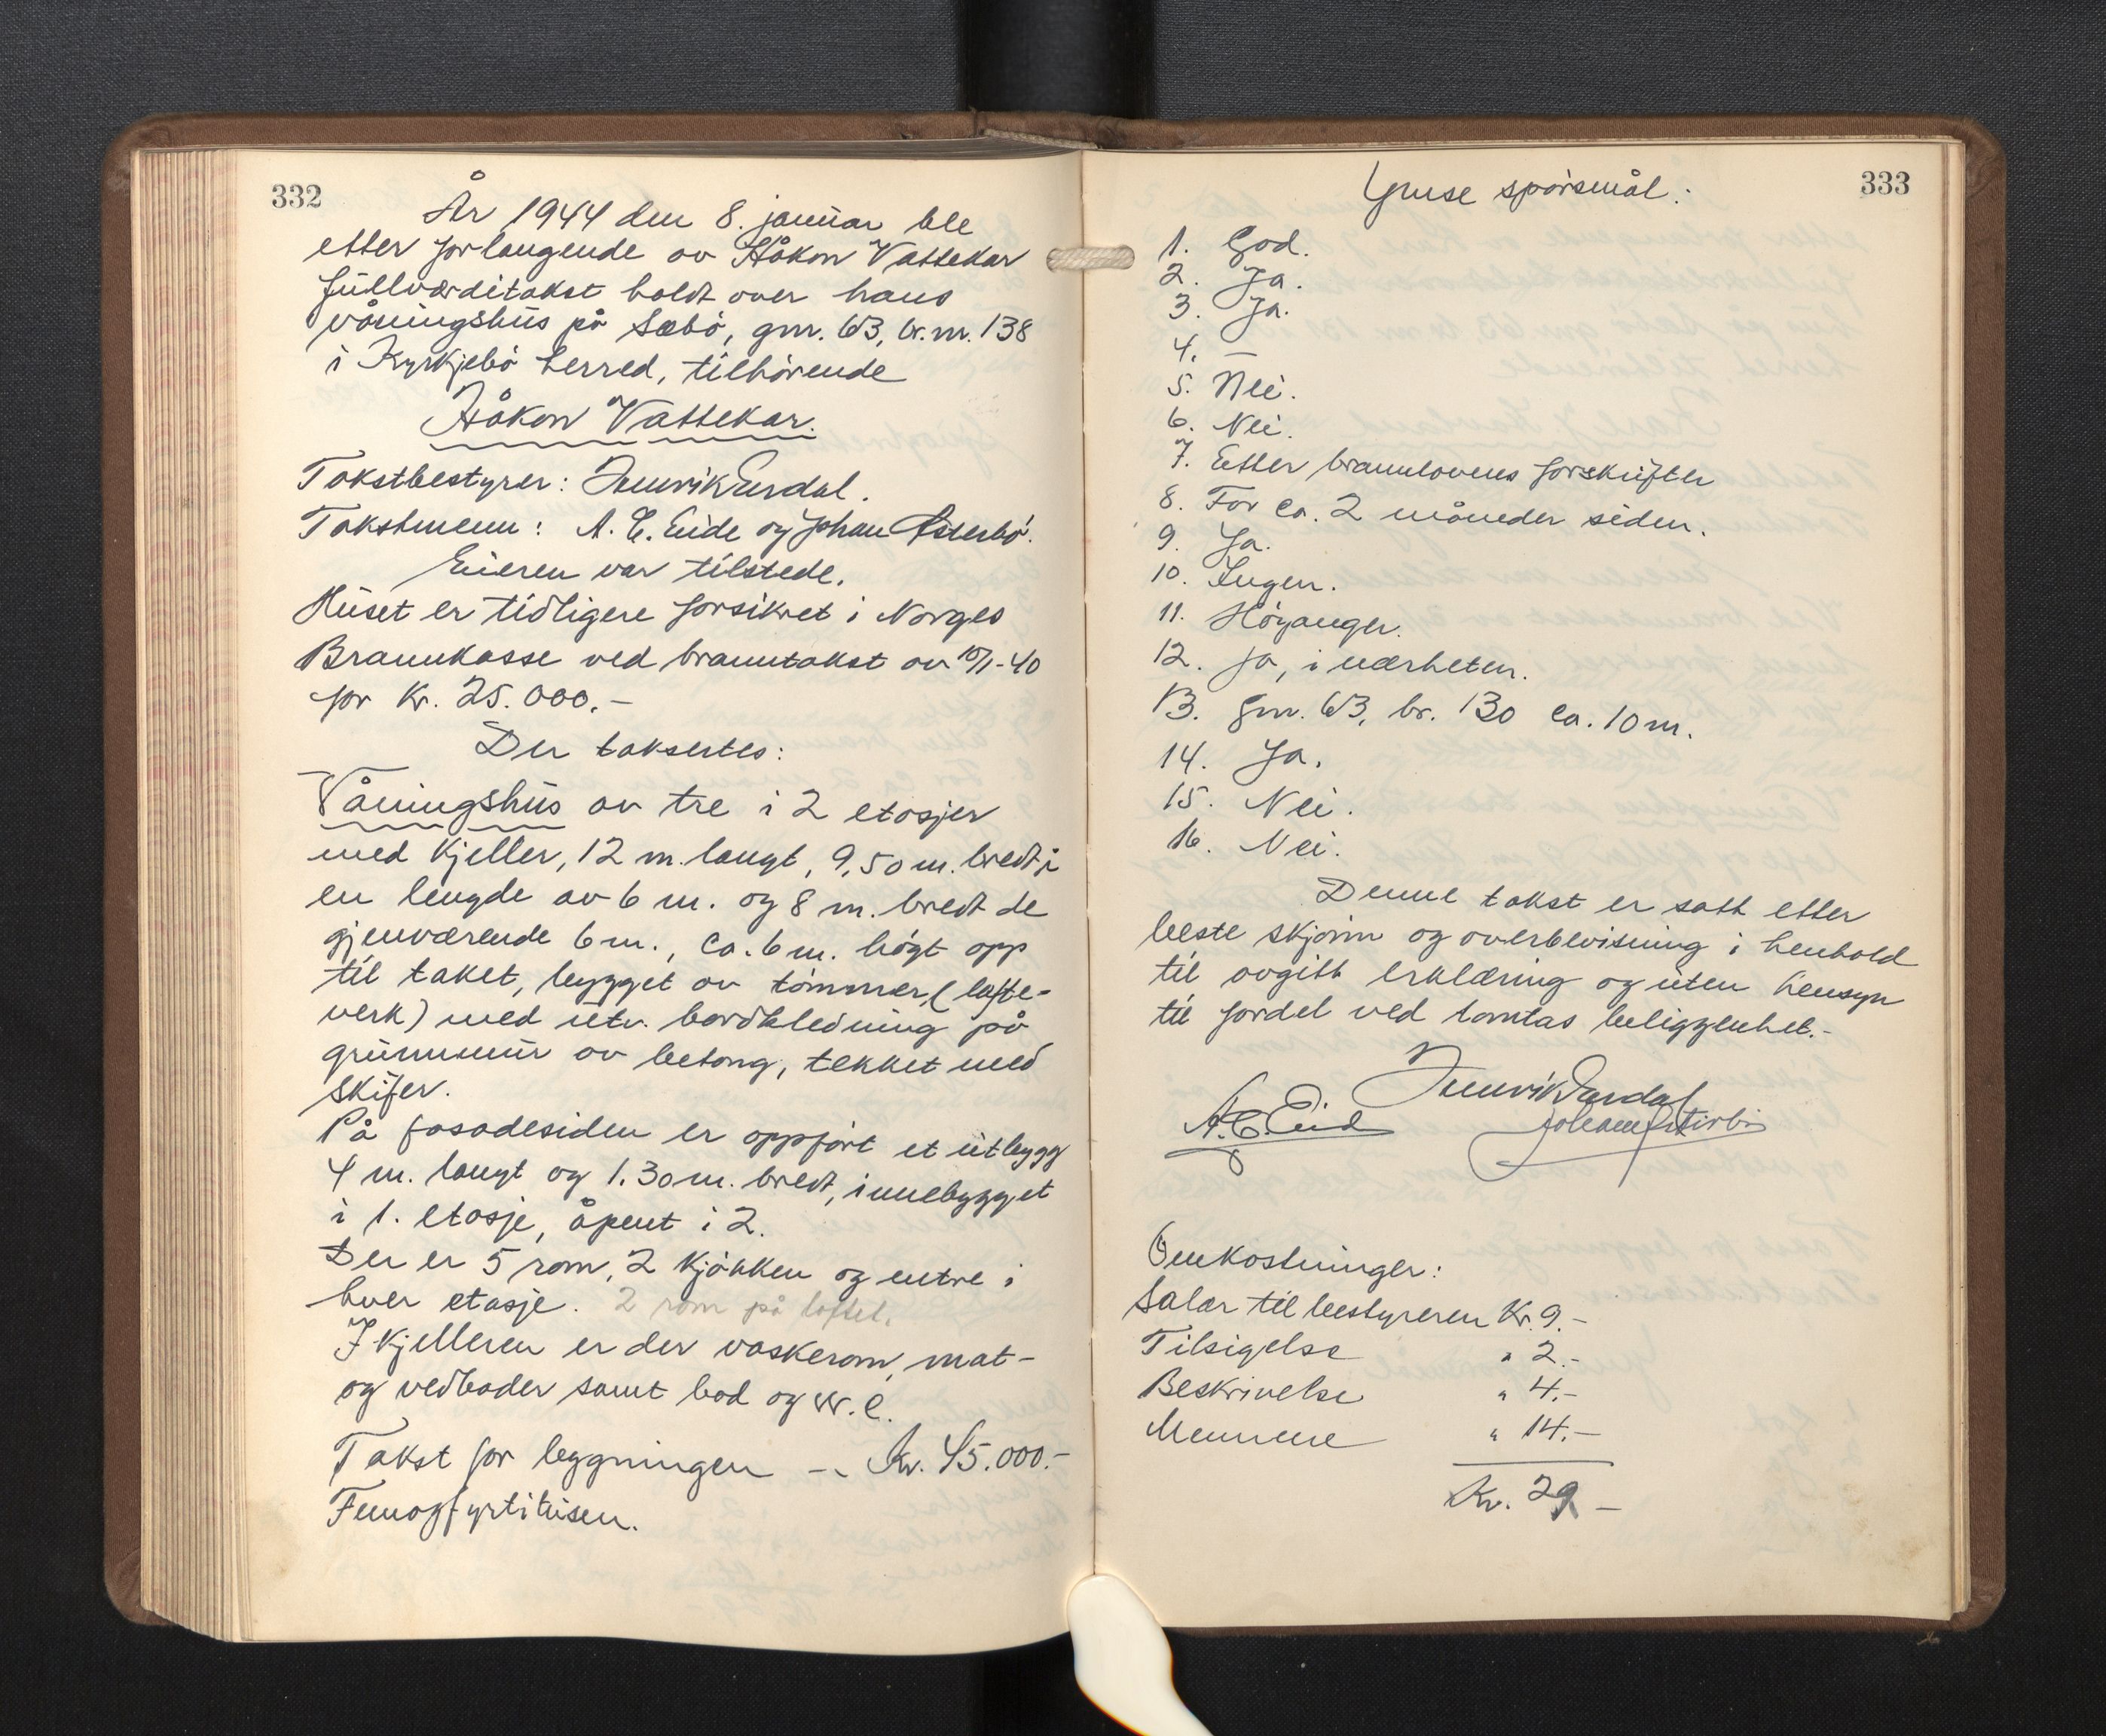 332
År 1944 den 8. januar ble
etter forlangende av Håkon Vattekar
fullverditakst holdt over hans
våningshus på Sæbö, gnr. 63, br.nr. 138
i Kyrkjebö herred, tilhörende
Håkon Vattekar.
Takstbestyrer: Henrik Erdal.
Takstmenn: A. E. Eide og Johan Österbö.
Eieren var tilstede.
Huset er tidligere forsikret i Norges
Brannkasse ved branntakst av 10/1-40
for kr. 25.000.-
Der taksertes:
Våningshus av tre i 2 etasjer
med kjeller, 12 m. langt, 9,50 m. bredt i
en lengde av 6 m. og 8 m. bredt de
gjenværende 6 m., ca. 6 m. högt opp
til taket, bygget av tömmer (lafte-
verk) med utv. bordkledning på
grunnmur av betong, tekket med
skifer.
På fasadesiden er oppfört et utbygg
4 m. langt og 1.30 m. bredt, innebygget
i 1. etasje, åpent i 2.
Der er 5 rom, 2 kjökken og entre i
hver etasje. 2 rom på loftet.
I kjelleren er der vaskerom, mat-
og vedboder samt bad og W.C.
Takst for bygningen -- Kr. 45.000.-
Femogfyrtitusen.
333
Ymse spörsmål:
1. God.
2. Ja.
3. Ja.
4. —
5. Nei.
6. Nei.
7. Etter brannlovens forskrifter
8. For ca. 2 måneder siden.
9. Ja.
10. Ingen.
11. Höyanger.
12. Ja, i nærheten.
13. gnr. 63, br. 130 ca. 10 m.
14. Ja.
15. Nei.
16. Nei.
Denne takst er satt etter
beste skjönn og overbevisning i henhold
til avgitt erklæring og uten hensyn
til fordel ved tomtas beliggenhet.-
Henrik Erdal
A. E. Eide Johan Österbö
Omkostninger:
Salær til bestyreren Kr. 9.-
Tilsigelse " 2.-
Beskrivelse " 4.-
Mennene " 14.-
Kr. 29 -